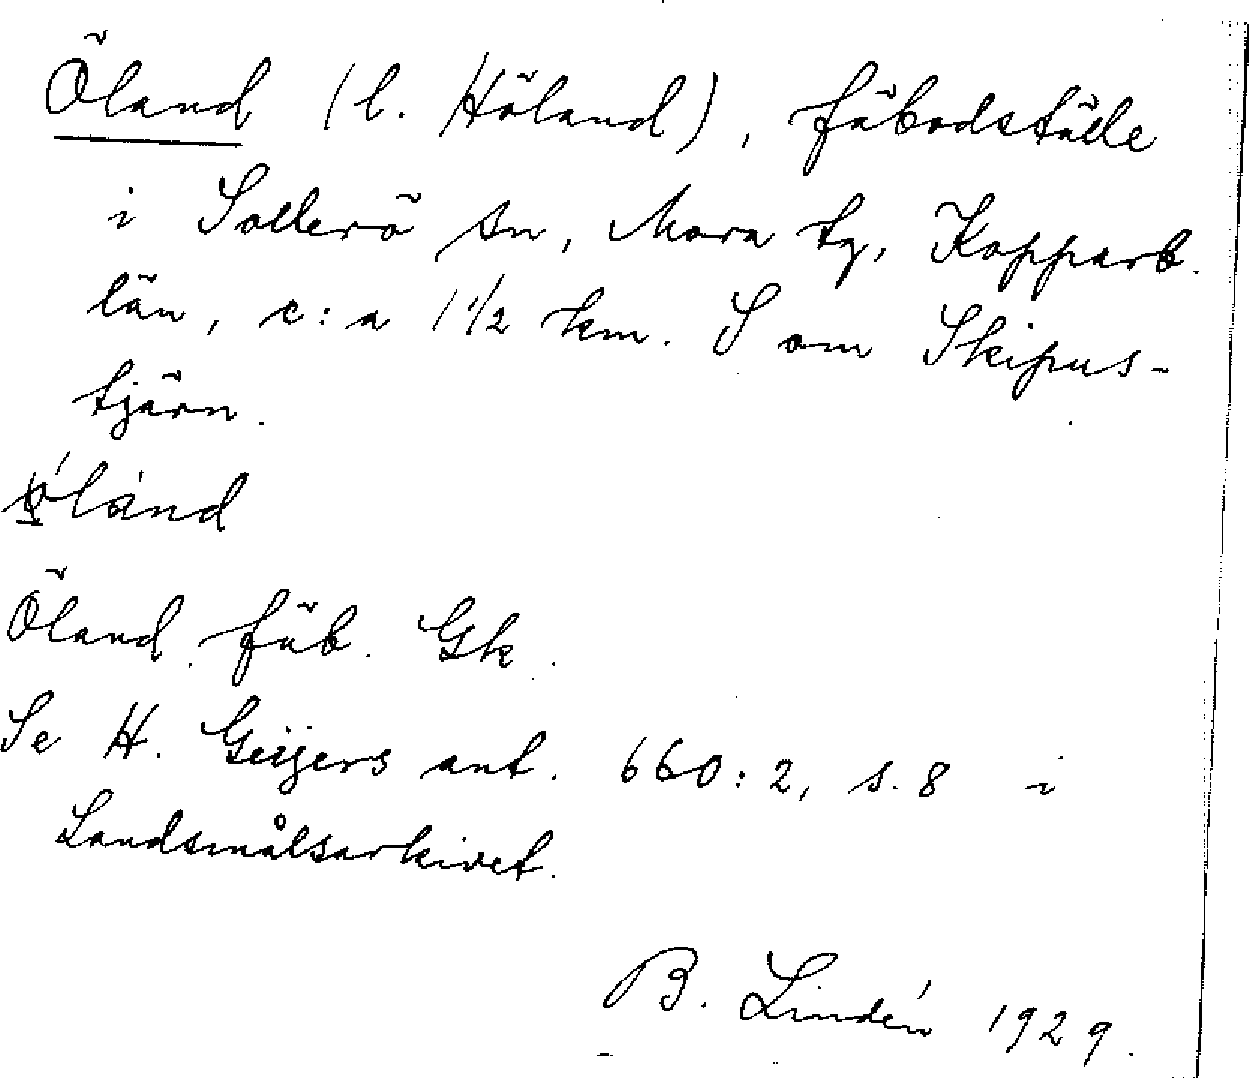 Öland (l. Höland), fäbodställe
i Sollerö sn, Mora tg, Kopparb.
län, c:a 1 1/2 km. S om Skipus-
tjärn.
Öland fäb. Gk.
Se H. Geijers ant. 660:2, s. 8 i
Landsmålsarkivet.
B. Lindén 1929.